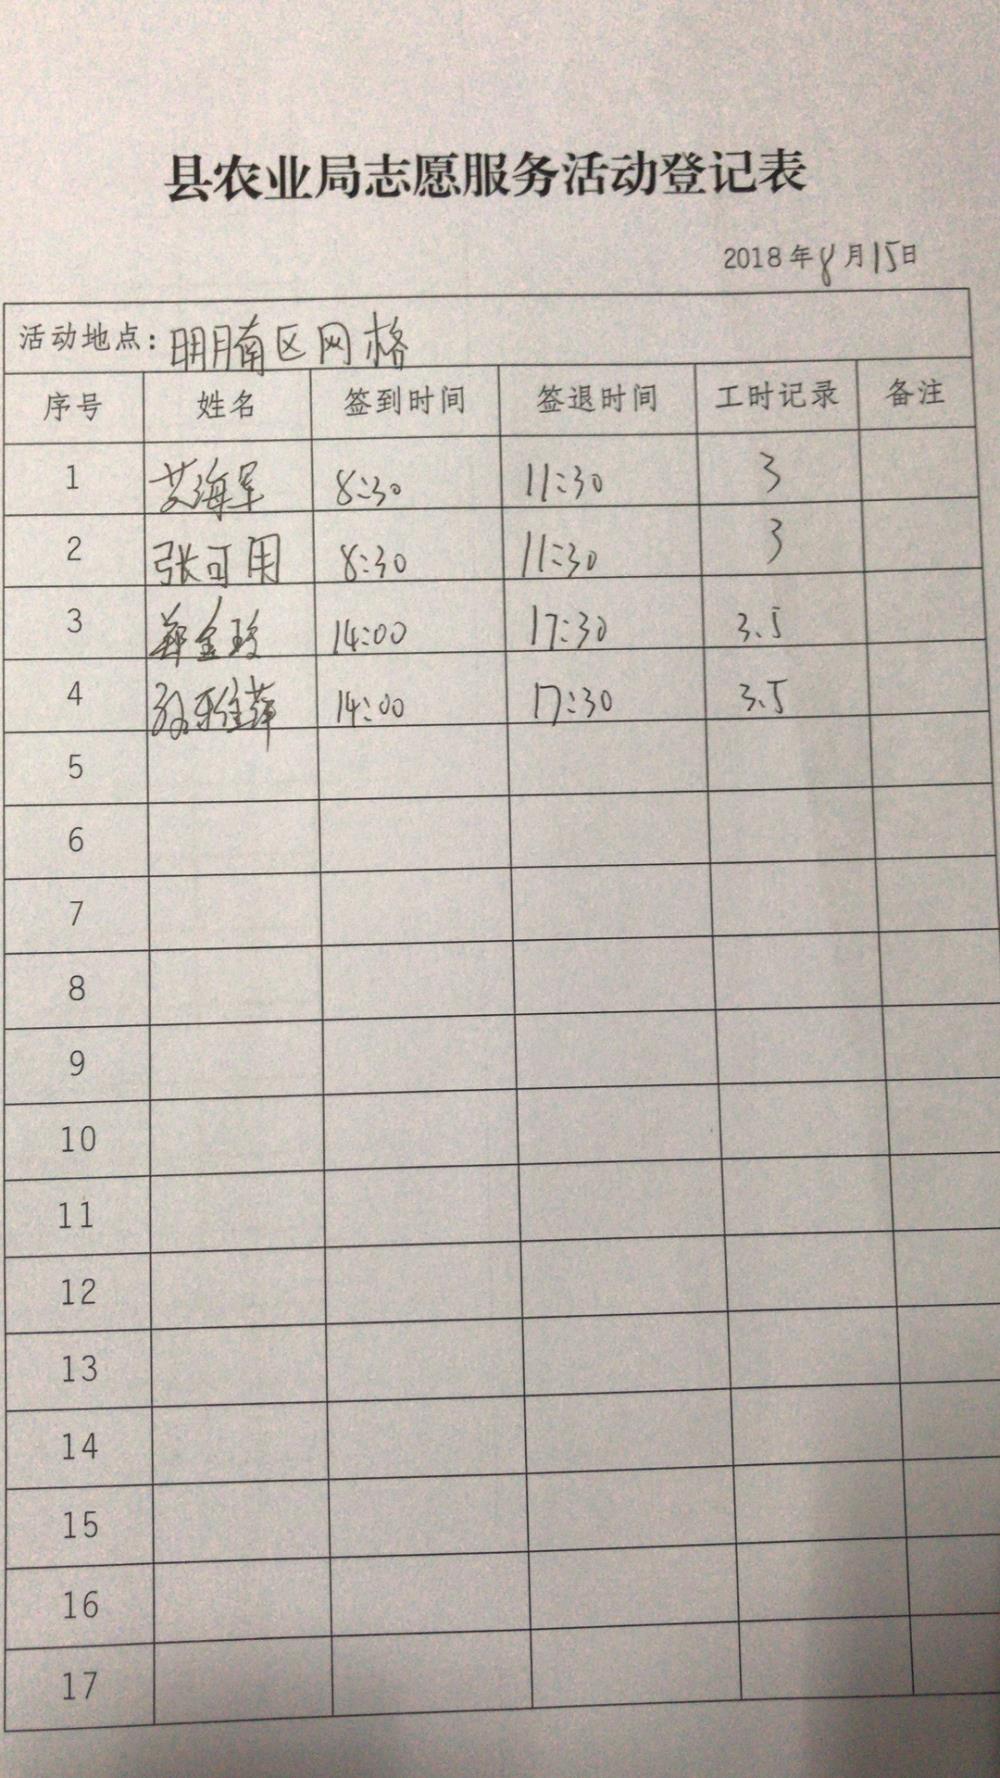 县农业局志愿服务活动登记表
2018年8月15日
活动地点：明腩区网格
序号 姓名 签到时间 签退时间 工时记录 备注
1 艾海军 8:30 11:30 3
2 张可用 8:30 11:30 3
3 郑金玲 14:00 17:30 3.5
4 14:00 17:30 3.5
5
6
7
8
9
10
11
12
13
14
15
16
17